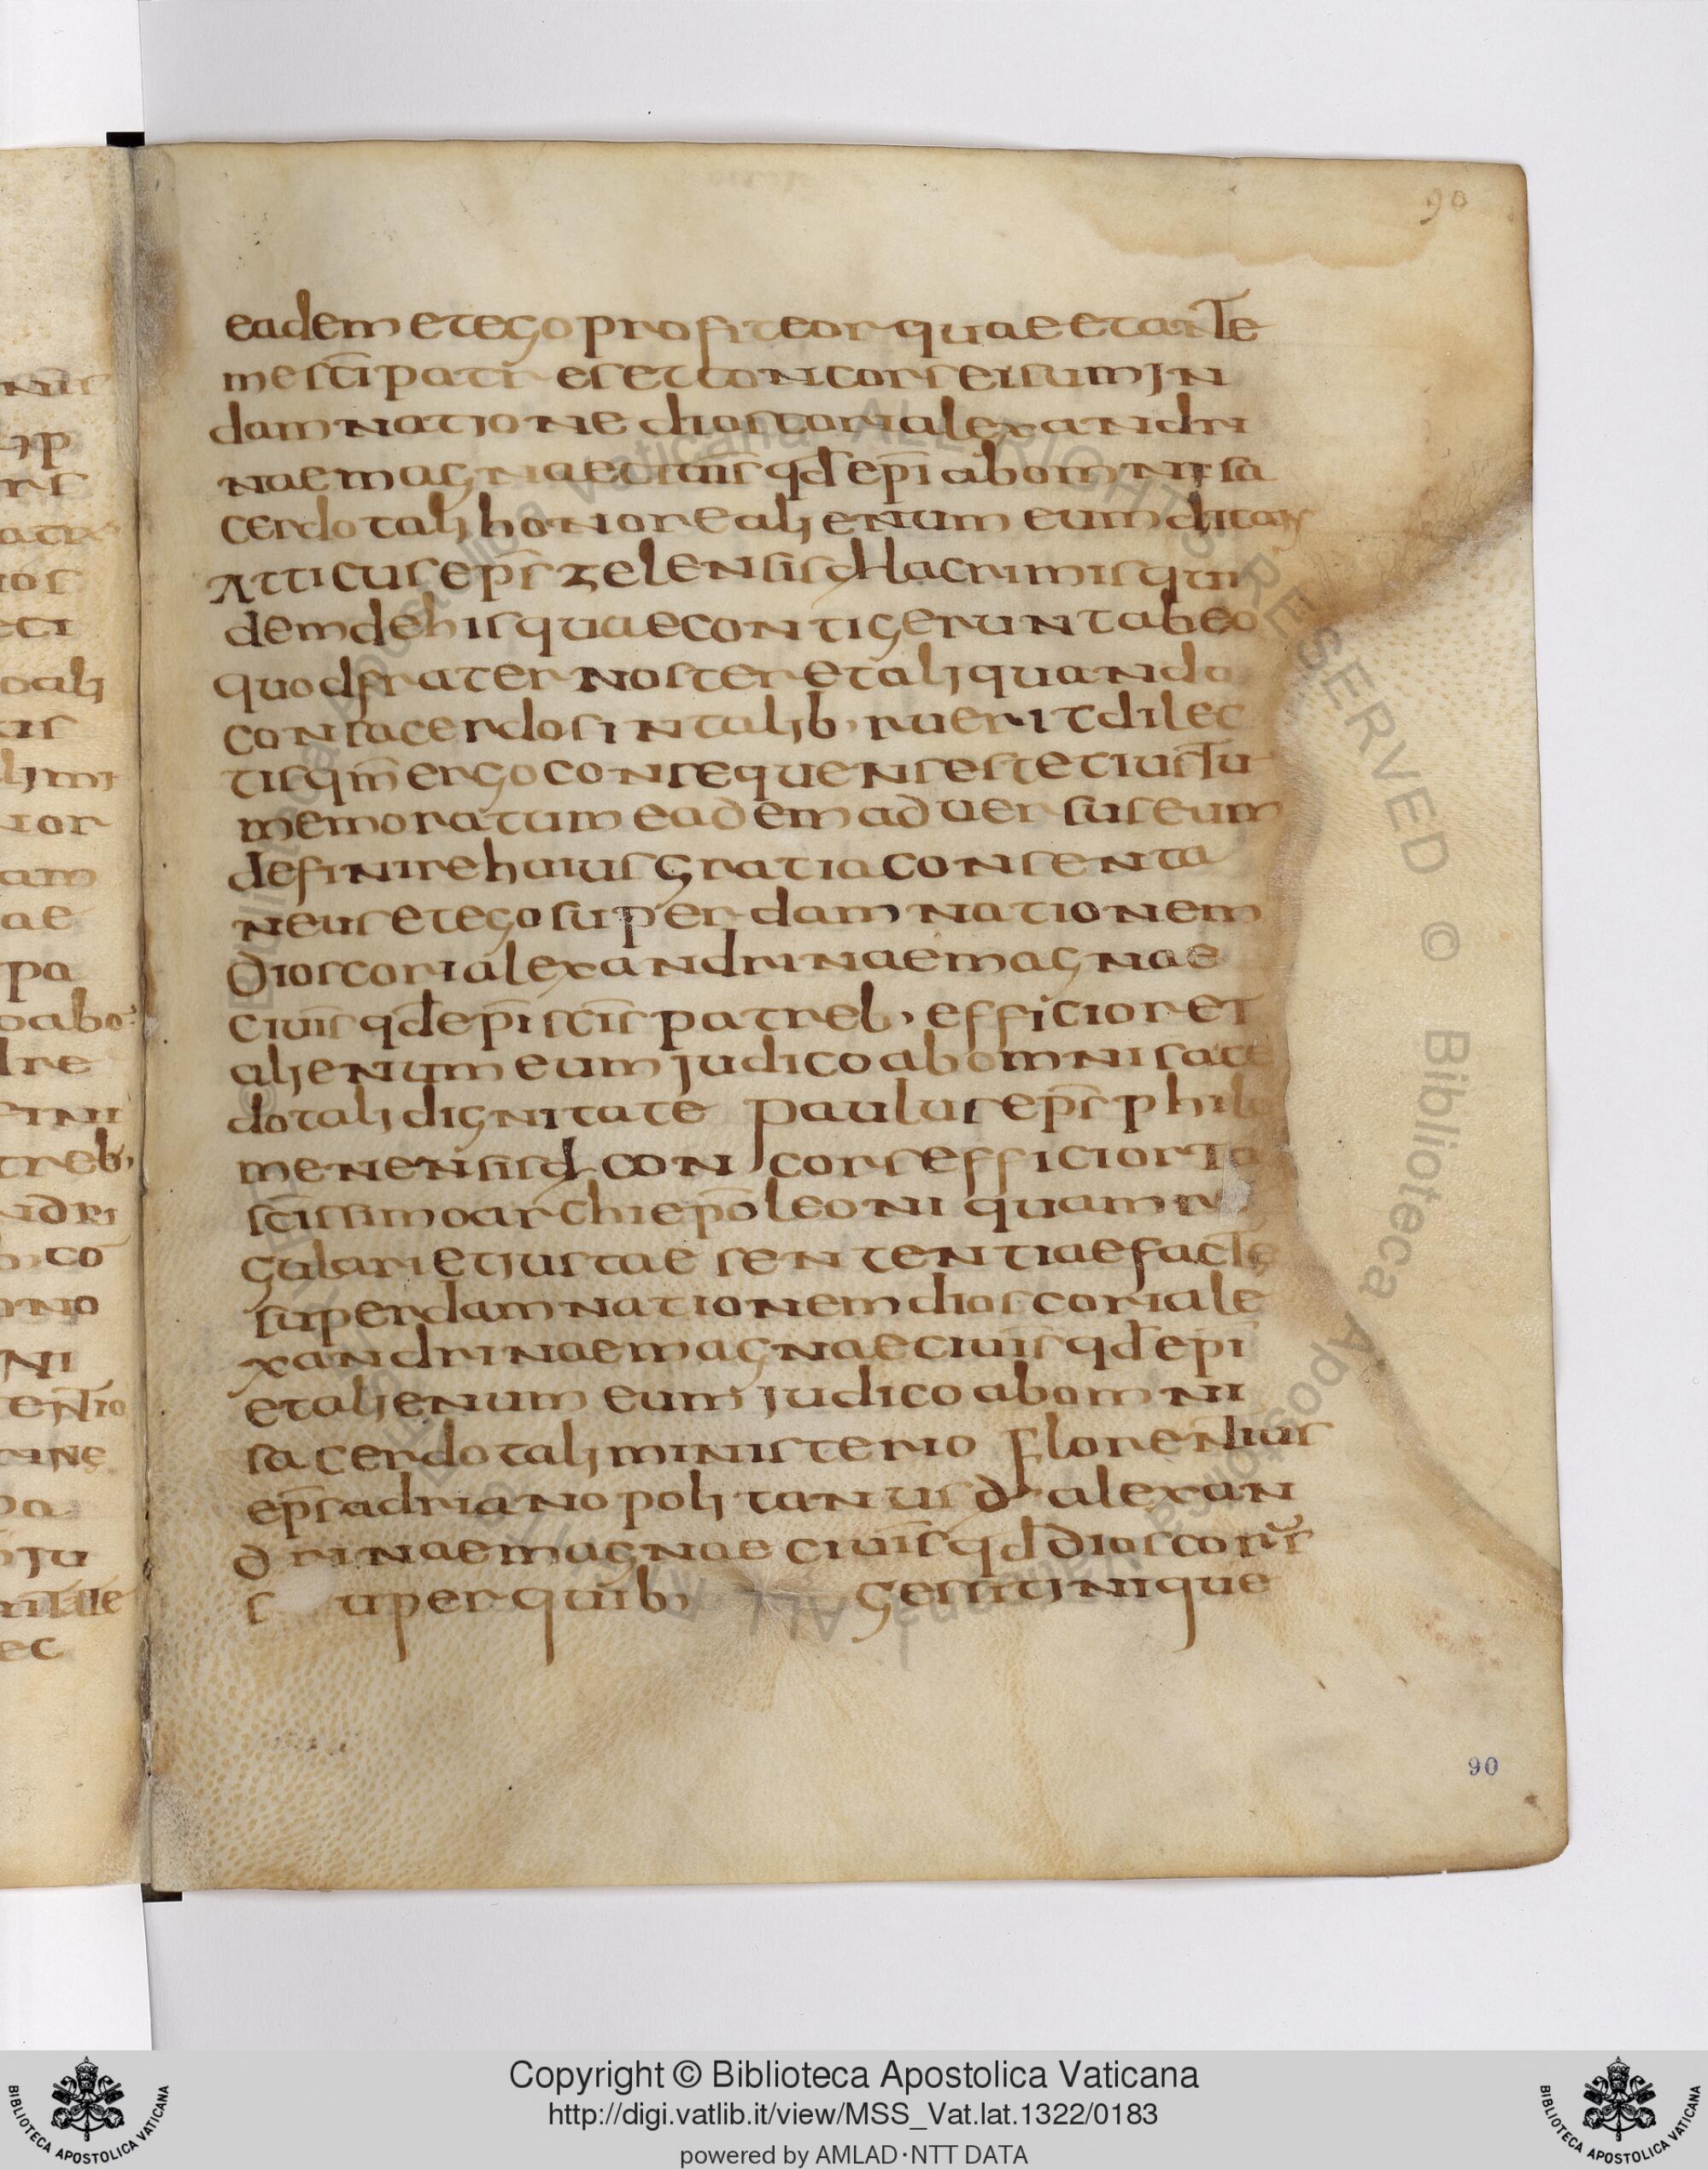 90
eadem et ego profiteor quae et ante
me sc̄i patres et concors eis sum in
damnatione dioscori alexandri
nae magnae ciuit̄s qd̄ ep̄i ab omni sa
cerdotali honore alienum eum
Atticus ep̄s zelensis d̵ lacrimis qui
dem de his quae contigerunt ab eo
quod frater noster et aliquando
consacerdos in talib, ruerit dilec
tis qm̄ ergo consequens est et ius
memoratum eadem aduersus eum
definire huius gratia consenta
neus et ego super damnationem
dioscori alexandrinae magnae
ciuit̄s qd̄ ep̄i sc̄is patreb, efficior et
alienum eum judico ab omni sace
dotali dignitate paulus ep̄s philo
menensis d̵ concors efficior
sc̄issimo archiep̄o leoni quam re
gulari et justae sententiae factae
super damnationem dioscori ale
xandrinae magnae ciuit̄s qd̄ ep̄i
et alienum eum judico ab omni
sacerdotali ministerio florentius
ep̄s adrianopolitanus d̵ alexan
drinae magnae ciuit̄s qd̄ dioscorus
super quib, gessit inique
90
nus
lip
atri
ios
eti
oali
us
limi
ior
am
ae
pa
abo
re
treb,
ndri
co
ono
ni
pa
ju
ec
Copyright © Biblioteca Apostolica Vaticana
http://digi.vatlib.it/view/MSS_Vat.lat.1322/0183
powered by AMLAD·NTT DATA
BIBLIOTECA APOSTOLICA VATICANA
BIBLIOTECA APOSTOLICA VATICANA
© Biblioteca Apostolica Vaticana ALL RIGHTS RESERVED